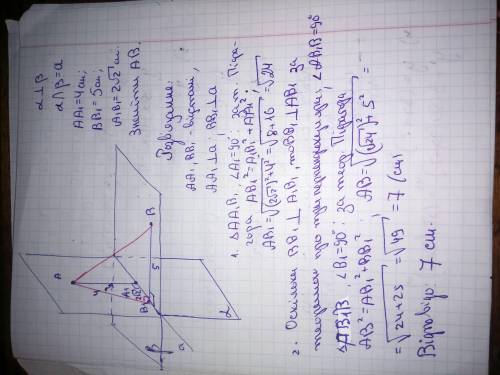 α⊥β
α∩β=a
AA₁=4см;
BB₁=5см;
A₁B₁=2√2 см.
Знайти AB.
A
4
A₁
2√2
B₁
5
B
β
a
α
Розв'язання:
AA₁, BB₁ - відстані,
AA₁⊥a; BB₁⊥a
1. △AA₁B₁, ∠A₁=90°: за т. Піфа-
гора AB₁²=A₁B₁²+AA₁²;
AB₁=√(2√2)²+4²=√8+16=√24
2. Оскільки BB₁⊥A₁B₁, то BB₁⊥AB₁ за
теоремою про три перпендикуляри, ∠AB₁B=90°
△AB₁B, ∠B₁=90°: за теор. Піфагора
AB²=AB₁²+BB₁² AB=√(√24)²+5² =
=√24+25=√49=7 (см)
Відповідь: 7 см.